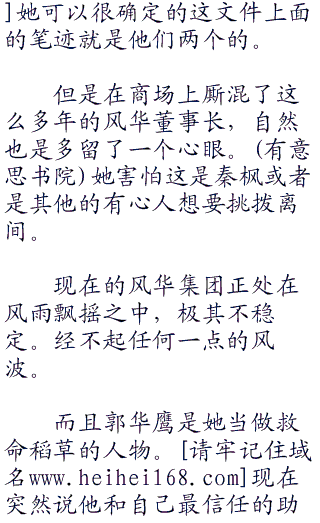 ]她可以很确定的这文件上面
的笔迹就是他们两个的。
但是在商场上厮混了这
么多年的风华董事长，自然
也是多留了一个心眼。(有意
思书院)她害怕这是秦枫或者
是其他的有心人想要挑拨离
间。
现在的风华集团正处在
风雨飘摇之中，极其不稳
定。经不起任何一点的风
波。
而且郭华鹰是她当做救
命稻草的人物。[请牢记住域
名www.heihei168.com]现在
突然说他和自己最信任的助